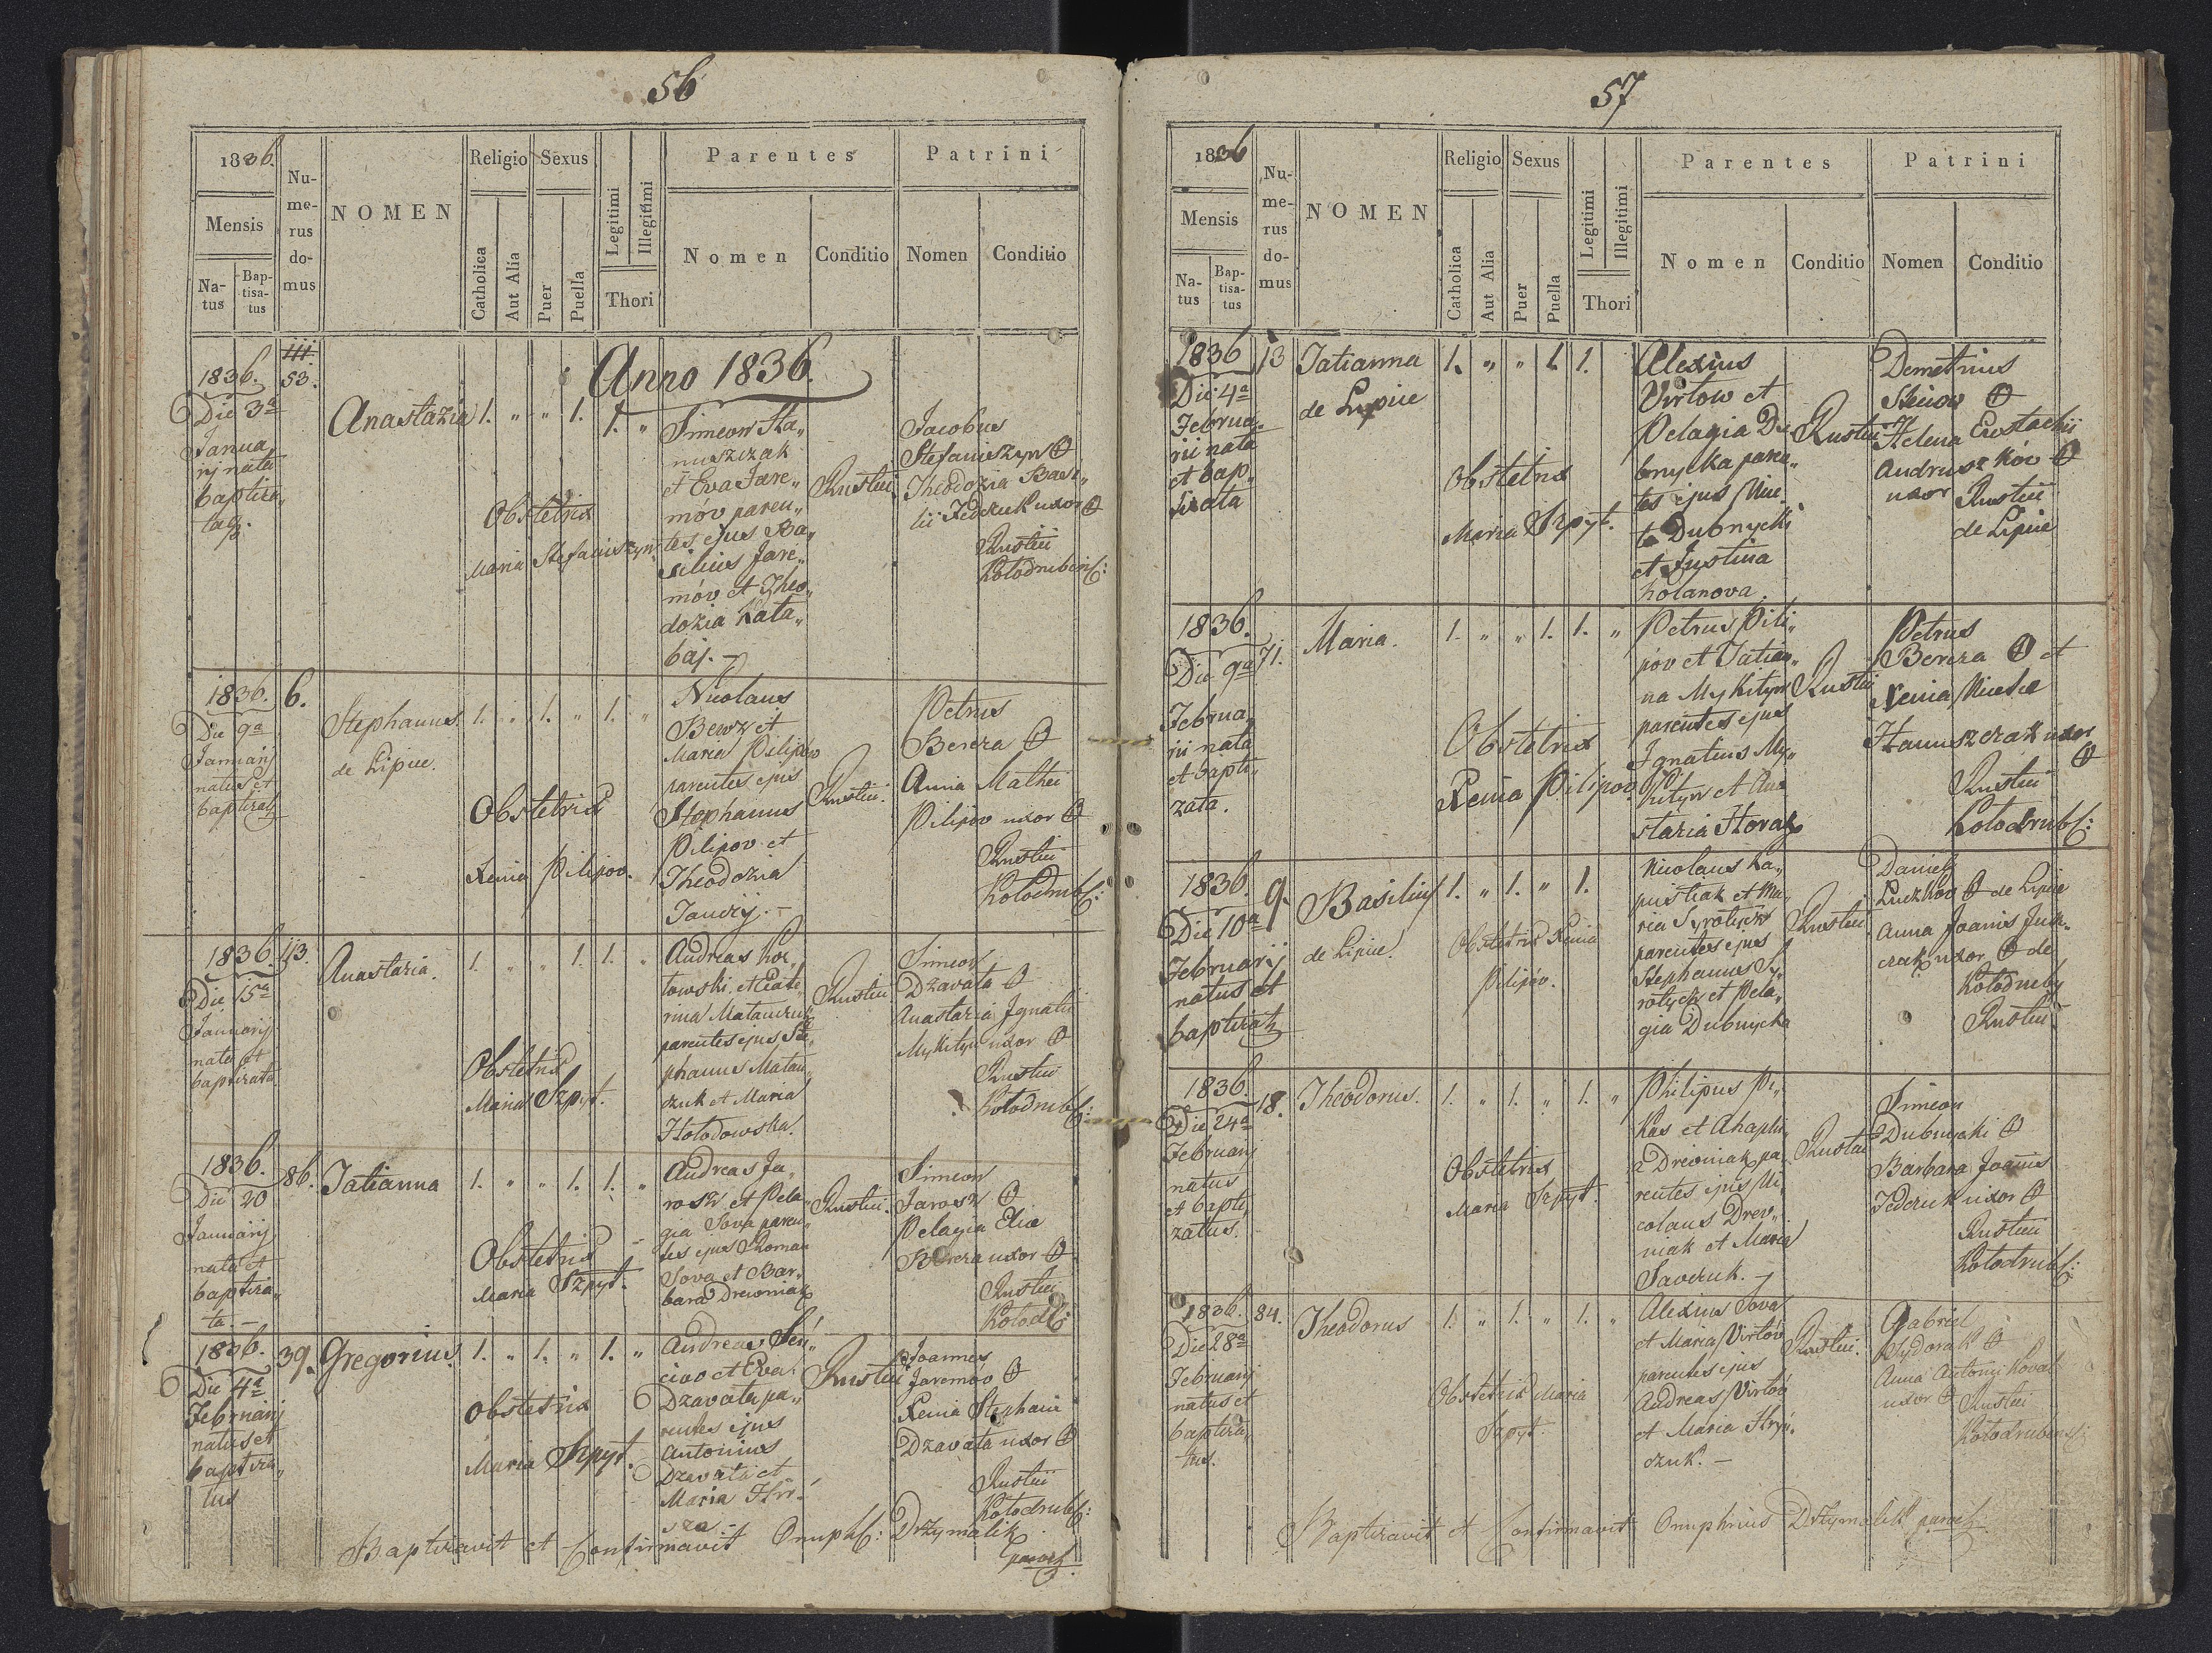 56
1836.
Mensis
Na-
tus
Bap-
tisa-
tus
Nu-
me-
rus
do-
mus
NOMEN
Religio
Catholica
Aut Alia
Sexus
Puer
Puella
Legitimi
Illegitimi
Thori
Parentes
Nomen
Conditio
Patrini
Nomen
Conditio
Anno 1836.
1836.
53.
Die 3a
Janua
rij nata
baptiza„
Anastazia
1. „ „ 1. 1. „
Obstetrix
Maria Stefaniszyn
Simeon Ha„
nuszczak
et Eva Jare„
móv paren„
tes ejus Ba„
silius Jare„
móv et Theo„
dozia Kata„
baj. –
Rustici
Jacobus
Stefaniszyn
Theodozia Basi„
lii Fedczuk uxor
Rustici
1836. 6.
Die 9a
Januarij
natus et
Stephanus
de Lipice.
1. „ 1. „ 1. „
Obstetrix
Xenia Pilipov.
Nicolaus
et
Maria Pilipov
parentes ejus
Stephanus
Pilipov et
Theodozia
Rustici.
Petrus
Bereza
Anna Mathei
Pilipov uxor
Rustici
1836. 113.
Die 15a
Januarij
nata et
baptizata
Anastazia.
1. „ „ 1. 1. „
Obstetrix
Maria Szpyt.
Andreas Koz„
towski et Cate„
rina
parentes ejus Ste„
phanus Matau„
czuk et Maria
Rustici
Simeon
Dzavata
Anastazia Ignatii
Mykityn uxor
Rustici
1836. 86.
Die 20
Januarij
nata et
baptiza„
ta. –
Tatianna
1. „ „ 1. 1. „
Obstetrix
Maria Szpyt.
Andreas Ja„
rosz et Pela„
gia Sova paren„
tes ejus Roman
Sova et Bar„
bara Drewniak
Rustici.
Simeon
Jarosz
Pelagia Eliæ
Bereza uxor
Rustici
1836. 39.
Die 4a
Februarij
natus et
baptiza„
tus
Gregorius.
1. „ 1. „ 1. „
Obstetrix
Maria Szpyt.
Andreas Sen„
et Eva
Dzavata pa„
rentes ejus
Antonius
Dzavata et
Maria
Rustici
Joannes
Jaremóv
Xenia Stephani
Dzavata uxor
Rustici
Baptizavit et Confirmavit Drzymalik
57
1836
Mensis
Na-
tus
Bap-
tisa-
tus
Nu-
me-
rus
do-
mus
NOMEN
Religio
Catholica
Aut Alia
Sexus
Puer
Puella
Legitimi
Illegitimi
Thori
Parentes
Nomen
Conditio
Patrini
Nomen
Conditio
1836 13
Die 4a
Februa„
rii nata
et bap„
tizata
Tatianna
de Lipice
1. „ „ 1. 1.
Obstetrix
Maria Szpyt.
Alexius
Virtow et
Pelagia Du
bnycka paren„
tes ejus Nice„
ta Dubnycki
et Justina
Kolanova.
Rustici
Demetrius
Helena Eustachii
uxor
Rustici
de Lipice
1836. 71.
Die 9a
Februa„
rii nata
et bapti„
zata.
Maria.
1. „ „ 1. 1. „
Obstetrix
Xenia Pilipov.
Petrus Pili„
pov et Tatian„
na Mykityn
parentes ejus
Ignatius My„
kityn et Ana
stazia
Rustici
Petrus
Bereza et
Xenia Nicetæ
Hanuszczak uxor
Rustici
1836. 9.
Die 10a
Februarij
natus et
Basilius
de Lipice.
1. „ 1. „ 1.
Obstetrix Xenia
Pilipóv.
Nicolaus Ka„
pustiak et Ma„
ria
parentes ejus
Stephanus Sy„
et Pela„
gia Dubnycka
Rustici
Daniel
de Lipice
Anna Joanis
uxor de
Rustici
1836. 18.
Die 24a
Februarij
natus
et bapti„
zatus.
Theodorus.
1. „ 1. „ 1. „
Obstetrix
Maria Szpyt.
Philipus Pi„
kas et
Drewniak pa„
rentes ejus Ni„
colaus Drev„
niak et Maria
Savczuk. –
Rustici
Simeon
Dubnycki
Barbara Joanis
Fedczuk uxor
Rustici
1836. 84.
Die 28a
Februarij
natus et
baptiza„
tus.
Theodorus
1. „ 1. „ 1. „
Obstetrix Maria
Szpyt.
Alexius Sova
et Maria Virtóv
parentes ejus
Andreas Virtóv
et Maria
czuk. –
Rustici.
Gabriel
Anna Antonij Koval
uxor Rustici
Baptizavit et Confirmavit Onuphrius Drzymalik